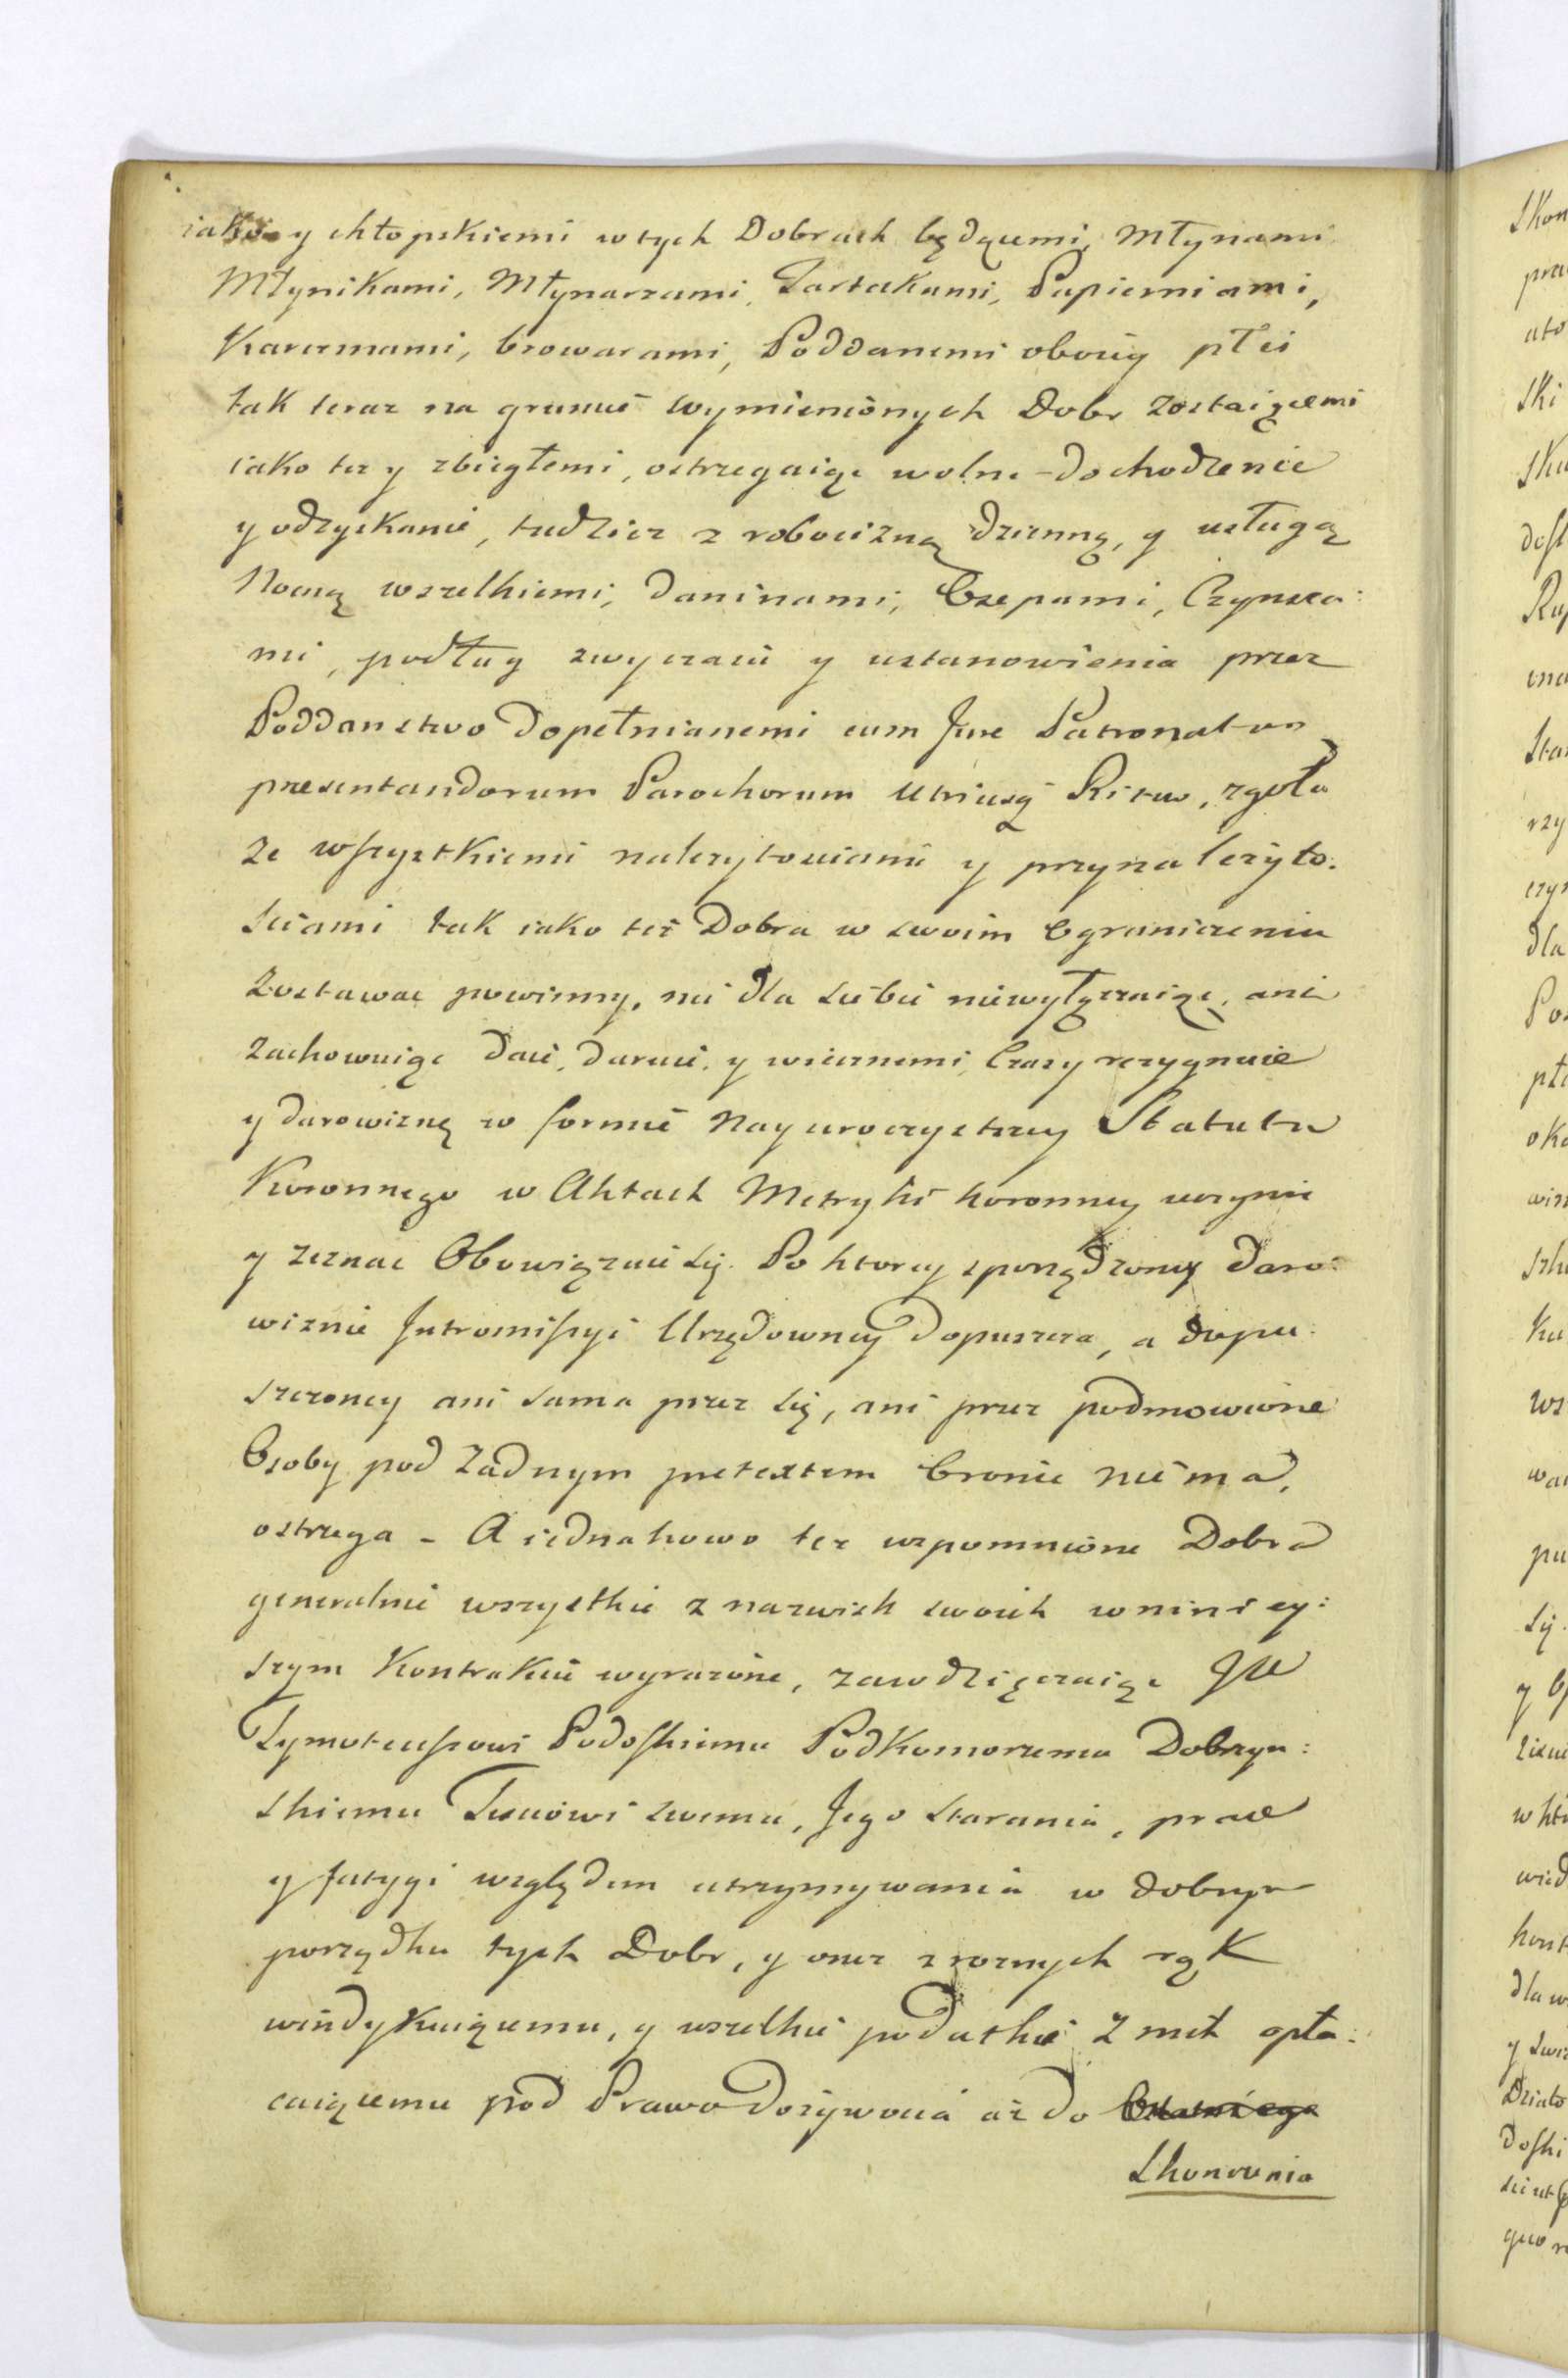 iako y chłopskiemi w tych Dobrach będącemi, Młynami
Młynikami, Młynarzami, Tartakami, Papierniami,
Karczmami, browarami, Poddanemi oboiey płci
tak teraz na gruncie wymienionych Dobr zostaiącemi
iako tez y zbiegłemi, ostrzegaiąc wolne dochodzenie
y odzyskanie, tudziez z robocizną dzienną, y usługą
Nocną wszelkiemi, daninami, Osepami, Czynsza:
mi, podług zwyczaiu y ustanowienia przez
Poddanstwo dopełnianemi cum Jure Patronatus
presentandorum Parochorum Utriusq Ritus, zgoła
ze wszystkiemi nalezytosciami y przynalezyto:
sciami tak iako też Dobra w swoim Ograniczeniu
zostawac powinny, nic dla siebie niewyłączaiąc, ani
zachowuiąc daie, daruie, y wiecznemi Czasy rezygnuie
y darowiznę w formie Nayuroczystszey Statutu
Koronnego w Aktach Metryki koronney uczynic
y zeznac Obowiązuie się. Po ktorey sporządzoney daro:
wiznie Intromissyi Urzędowney dopuszcza, a dopu:
szczoney ani sama przez się, ani przez podmowione
Osoby pod żadnym pretextem bronic nie ma,
ostrzega - A iednakowo tez wspomnione Dobra
generalnie wszystkie z nazwisk swoich w niniey:
szym Kontrakcie wyrazone, zawdzięczaiąc JW
Tymoteuszowi Podoskiemu Podkomorzemu Dobrzyn:
skiemu Synowi swemu, Jego starania, prace
y fatygi względem utrzymywania w dobrym
porządku tych Dobr, y onez z roznych rąk
windykuiącemu, y wszelkie podatki z nich opła:
caiącemu pod Prawo Dożywocia aż do Ostatniego
Skonowania